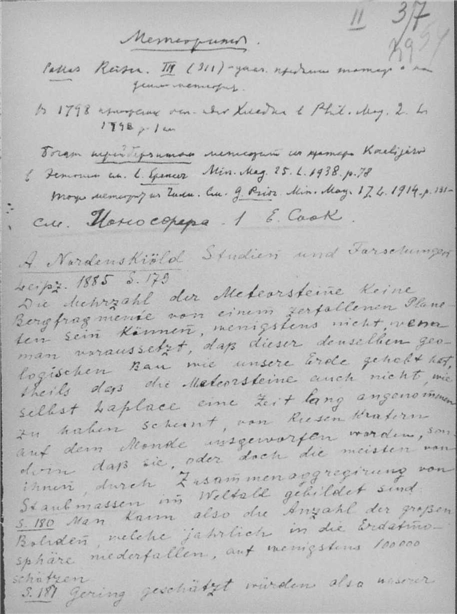 II 37
Метеориты.
Pallas Reise. III (311)
В 1798 Хладни в Phil. Mag. 2. L.
1798 p. 1
Богат метеорит из кратера Kaalijärv
в Эстонии см. L. Spencer Min. Mag. 25. L. 1938. p. 78
метеорит из см. G. Prior Min. Mag. 17. L. 1914. p.
см. Ионосфера. 1 E. Cook.
A Nordenskiöld Studien und Forschungen
Leipz. 1885 S. 179
Die Mehrzahl der Meteorsteine keine
Bergfragmente von einem zerfallenen Plane-
ten sein können, wenigstens nicht, wenn
man voraussetzt, daß dieser denselben geo-
logischen Bau wie unsere Erde gehabt hat,
theils daß die Meteorsteine auch nicht, wie
selbst Laplace eine Zeit lang angenommen
zu haben scheint, von Riesen Kratern
auf dem Monde ausgeworfen wurden, son-
dern daß sie, oder doch die meisten von
ihnen, durch Zusammenaggregirung von
Staubmassen im Weltall gebildet sind
S. 180 Man kann also die Anzahl der großen
Boliden, welche jährlich in die Erdatmo-
sphäre niederfallen, auf wenigstens 100000
schätzen
S. 181 Gering geschätzt würden also unserer